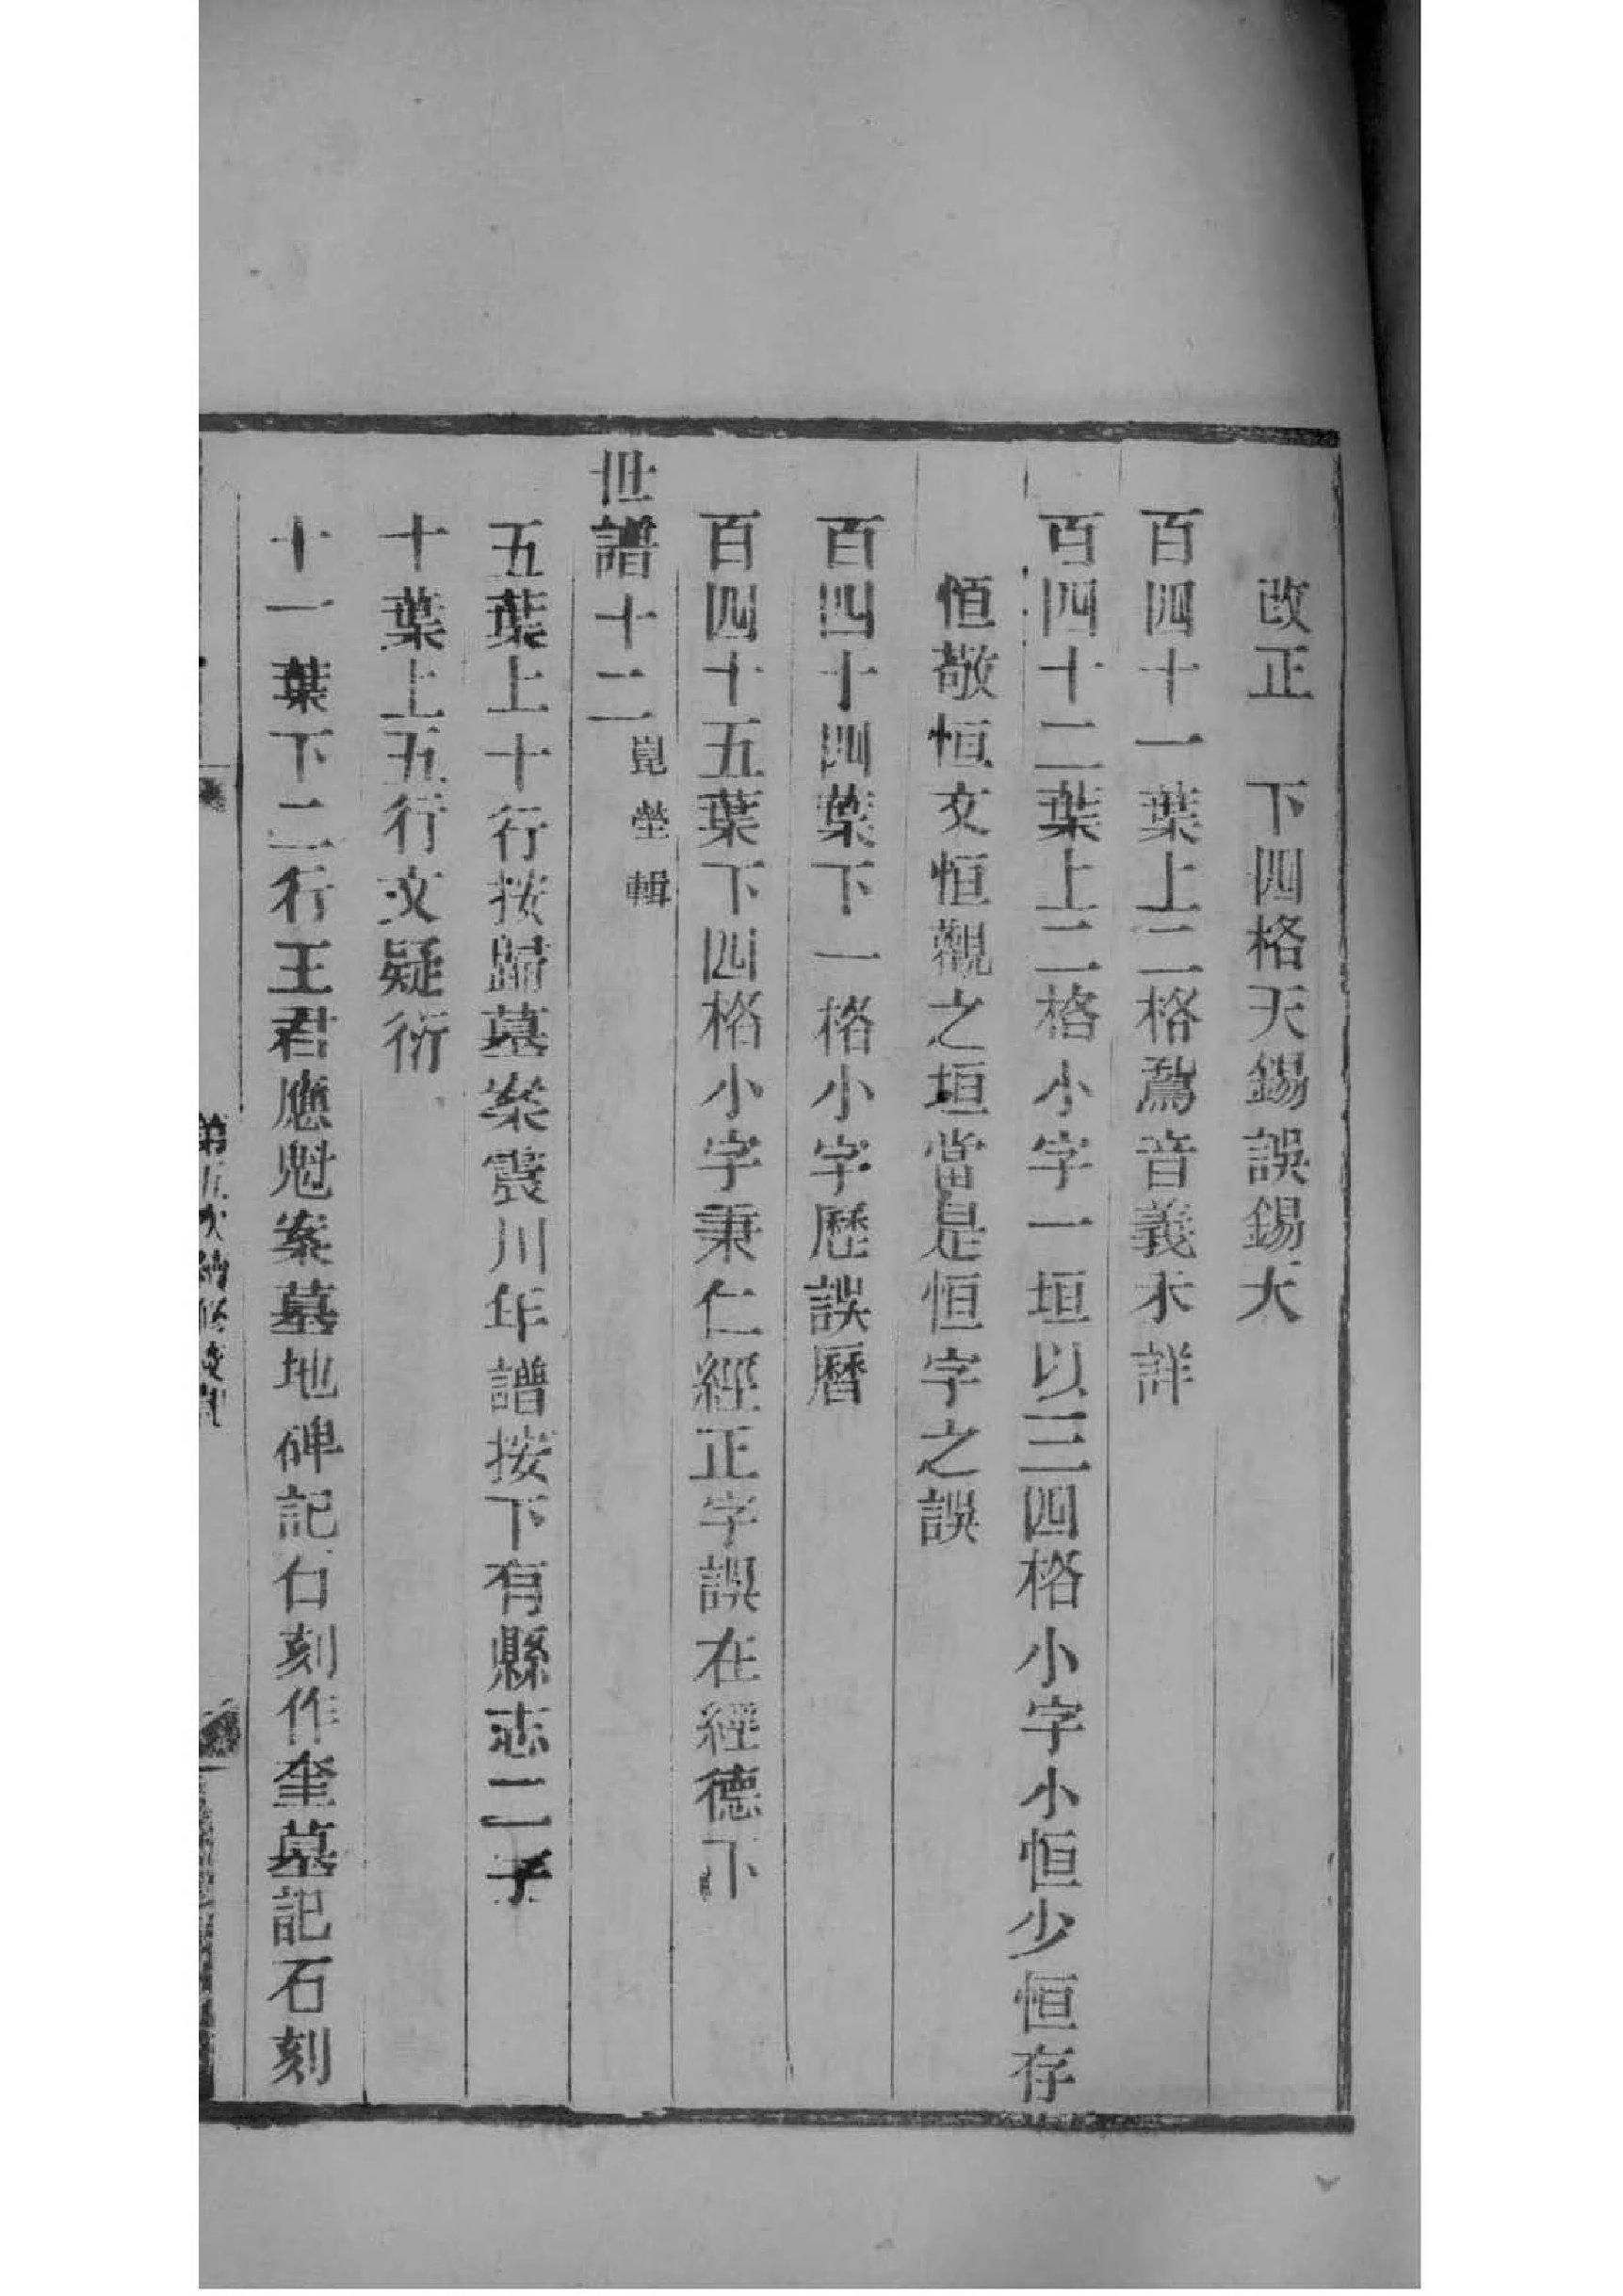 改正　下四格天錫誤錫大
百四十一葉上二格鵞音義未詳
百四十二葉上二格小字一垣以三四格小字小恒少恒存
恒敬恒文恒觀之垣當是恒字之誤
百四十四葉下一格小字歷誤曆
百四十五葉下四格小字秉仁經正字誤在經德下
世譜十二崑塋輯
五葉上十行按歸墓案震川年譜按下有縣志二字
十葉上五行文疑衍
十一葉下二行王君應魁案墓地碑記石刻作奎墓記石刻
第五次續修